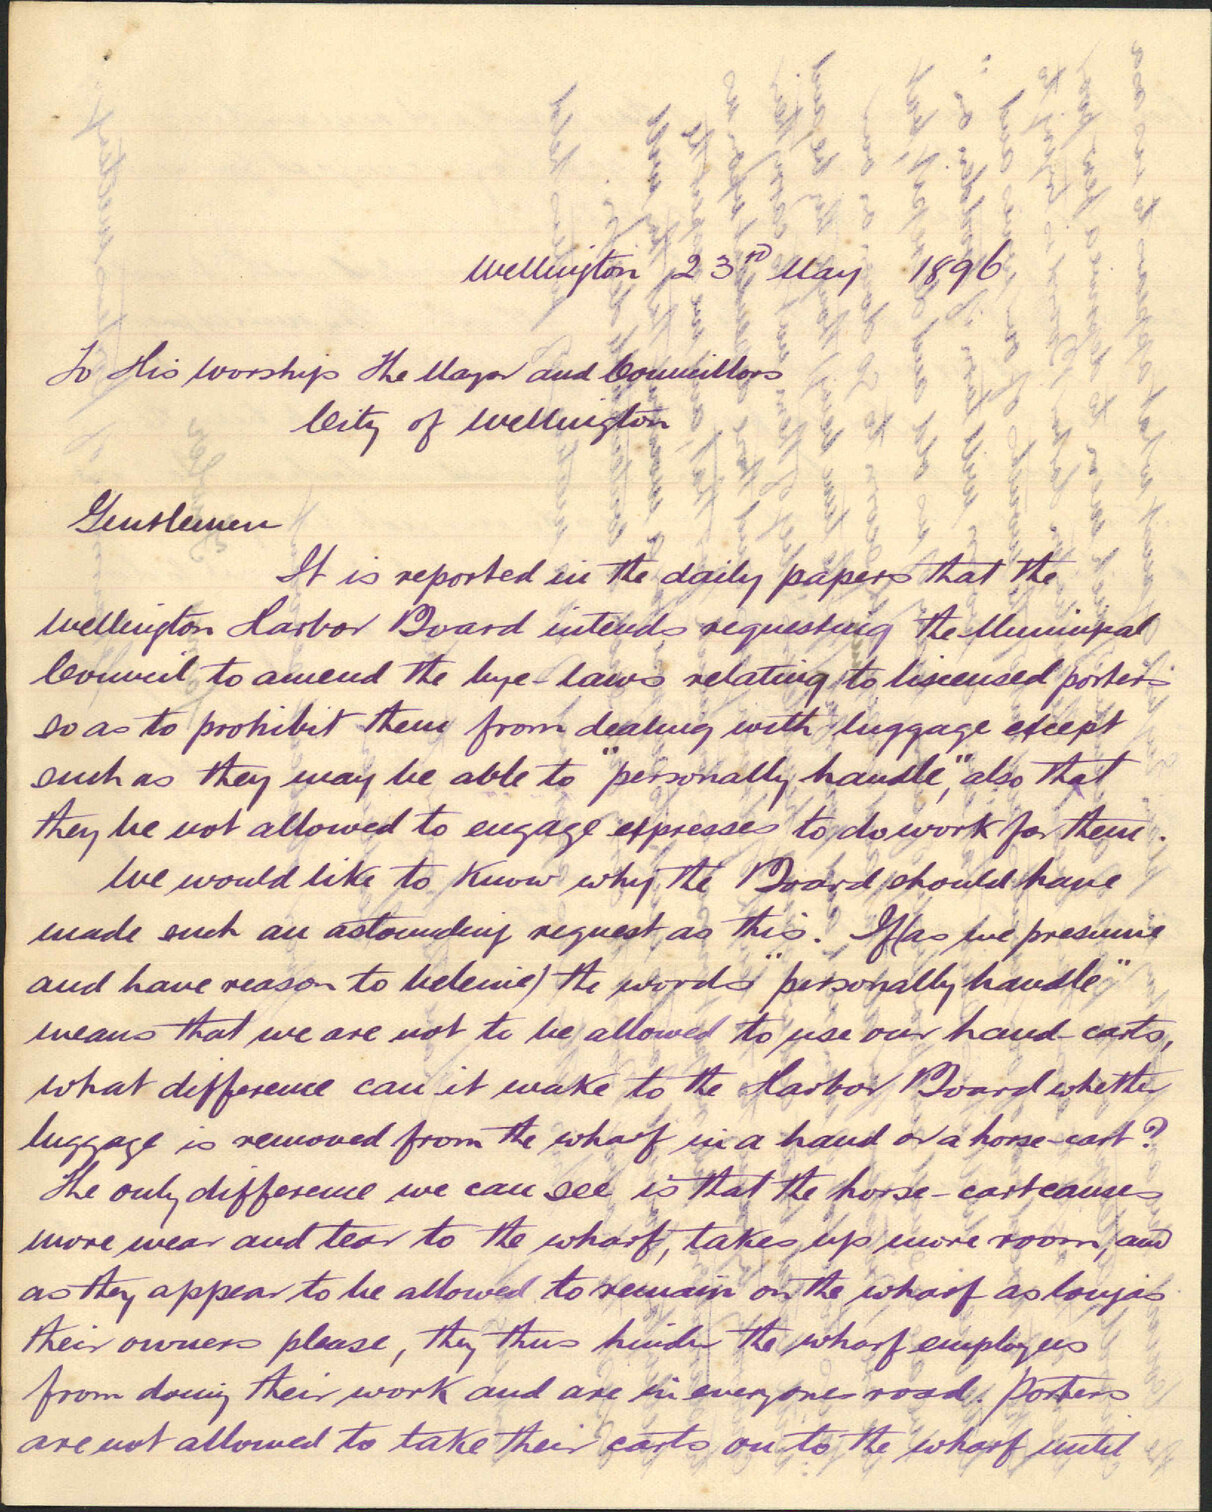 Wellington 23rd May 1896
To His Worship The Mayor and Councillors
City of Wellington
Gentlemen
It is reported in the daily papers that the
Wellington Harbor Board intends requesting the Municipal
Council to amend the bye-laws relating to liscensed porters
so as to prohibit them from dealing with luggage except
such as they may be able to "personally handle," also that
they be not allowed to engage expresses to do work for them.
We would like to know why the Board should have
made such an astounding request as this. If (as we presume
and have reason to beleive) the words "personally handle"
means that we are not to be allowed to use our hand-carts,
what difference can it make to the Harbor Board whether
luggage is removed from the wharf in a hand or a horse-cart?
The only difference we can see is that the horse-cart causes
more wear and tear to the wharf, takes up more room, and
as they appear to be allowed to remain on the wharf as long as
their owners please, they thus hinder the wharf employees
from doing their work and are in everyones road. Porters
are not allowed to take their carts on to the wharf until